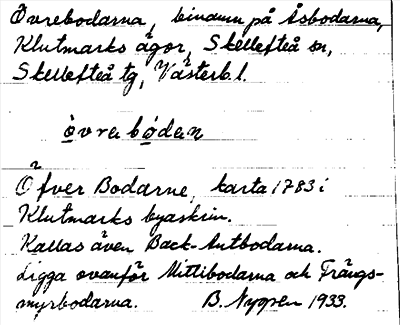 Övrebodarna, binamn på Åsbodarna,
Klutmarks ägor, Skellefteå sn,
Skellefteå tg, Västerb. l.
òvrabo̱dan
Öfver Bodarne, karta 1783 i
Klutmarks byaskrin.
Kallas även Back-Antbodarna.
Ligga ovanför Mittibodarna och Trångs-
myrbodarna. B. Nygren 1933.